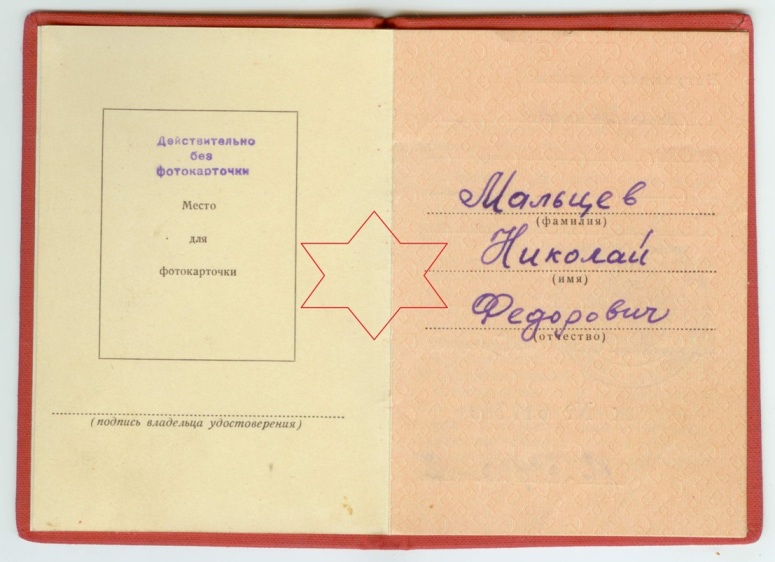 Действительно
без
фотокарточки
Место
для
фотокарточки
(подпись владельца удостоверения)
Мальцев
(фамилия)
Николай
(имя)
Федорович
(отчество)